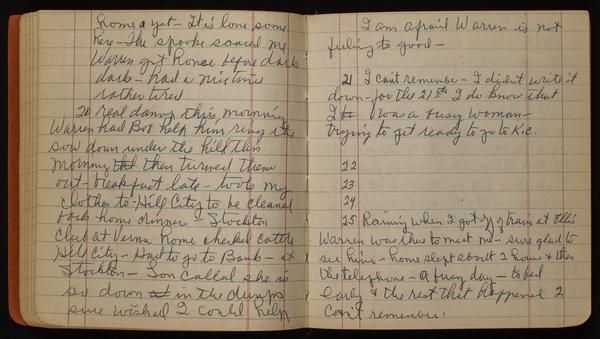 home a yet - It is lone some
here - The spooks scared me
Warren got home before dark
dark - had a nice time
rather tired
20 real damp this morning
Warren had Bob help him ring the
sow down under the hill this
morning then turned them
out - breakfast late - took my
clothes to Hill City to be cleaned
back home dinner - Stockton
Club at Verna home checked cattle
Hill City - Had to go to Bank - at
Stockton - Lon called she is
so down at in the dumps
sure wished I could help
I am afraid Warren is not
feeling to good -
21 I can't remember - I didn't write it
down - for the 21st I do know that
I was a busy woman -
trying to get ready to go to K.C.
22
23
24
25 Raining when I got off of train at Ellis
Warren was there to meet me - sure glad to
see him - home slept about 2 hours & then
the telephone - a busy day - to bed
early & the rest that happened I
can't remember!